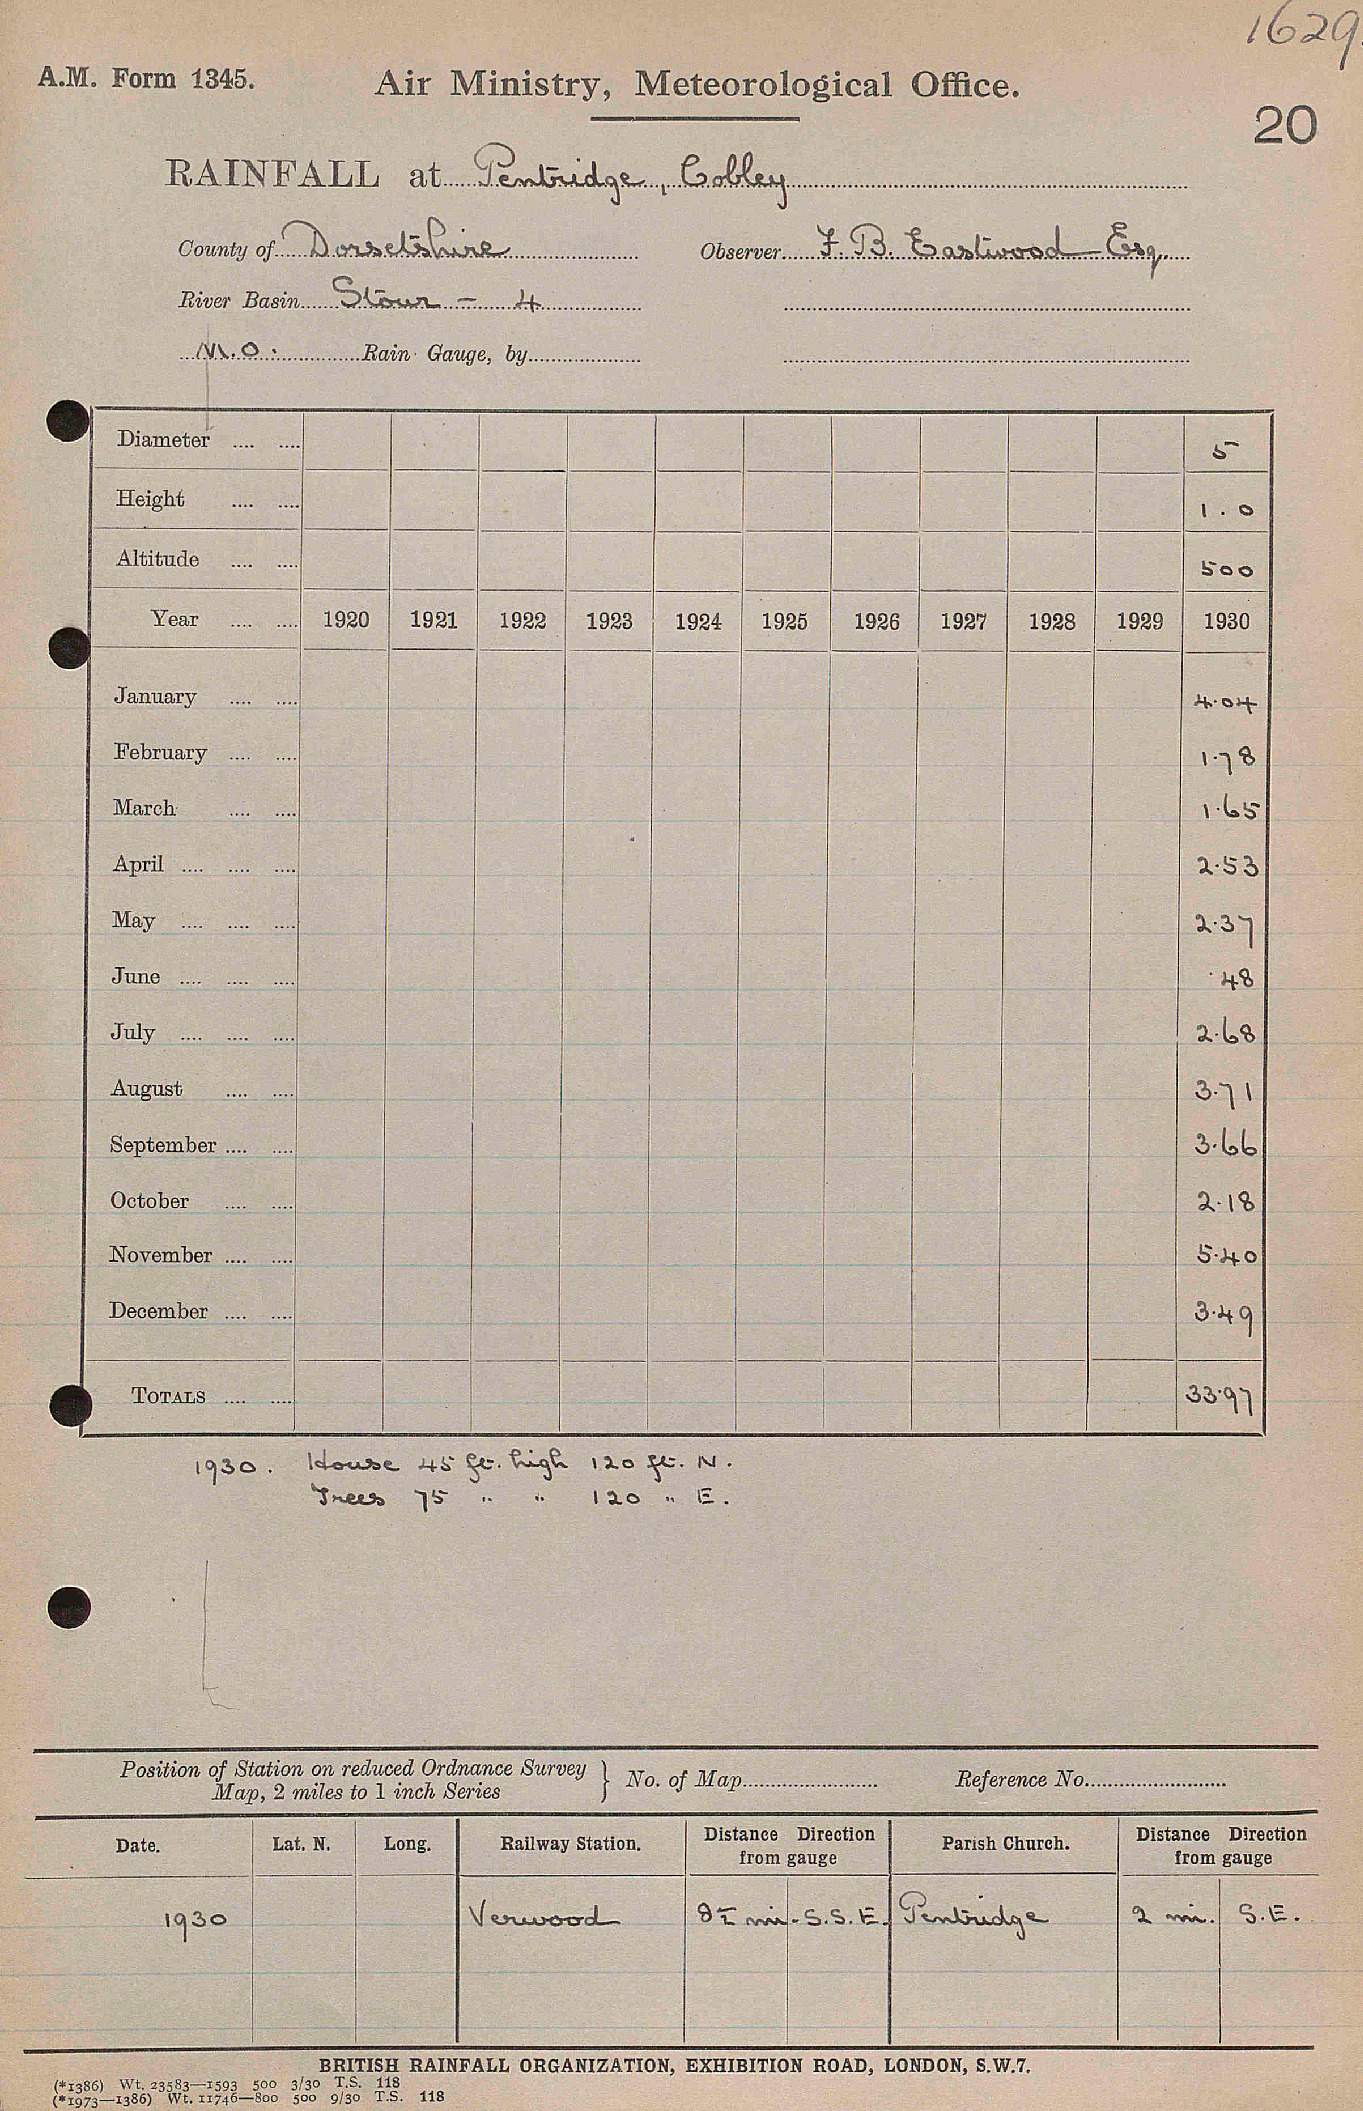 1629.
A.M. Form 1345. Air Ministry, Meteorological Office.
20
RAINFALL at Pentridge, Cobley
County of Dorsetshire Observer F. B. Eastwood Esq.
River Basin Stour - 4
M.O. Rain Gauge, by
Diameter 5
Height 1.0
Altitude 500
Year 1920 1921 1922 1923 1924 1925 1926 1927 1928 1929 1930
January 4.04
February 1.78
March 1.65
April 2.53
May 2.37
June .48
July 2.68
August 3.71
September 3.66
October 2.18
November 5.40
December 3.49
TOTALS 33.97
1930. House 45 ft. high 120 ft. N.
Trees 75 " " 120 " E.
Position of Station on reduced Ordnance Survey
Map, 2 miles to 1 inch Series } No. of Map Reference No.
Date. Lat. N. Long. Railway Station. Distance Direction from gauge Parish Church. Distance Direction from gauge
1930 Verwood mi. S.S.E. Pentridge 2 mi. S.E.
BRITISH RAINFALL ORGANIZATION, EXHIBITION ROAD, LONDON, S.W.7.
(*1386) Wt. 23583—1593 500 3/30 T.S. 118
(*1973—1386) Wt. 11746—800 500 9/30 T.S. 118